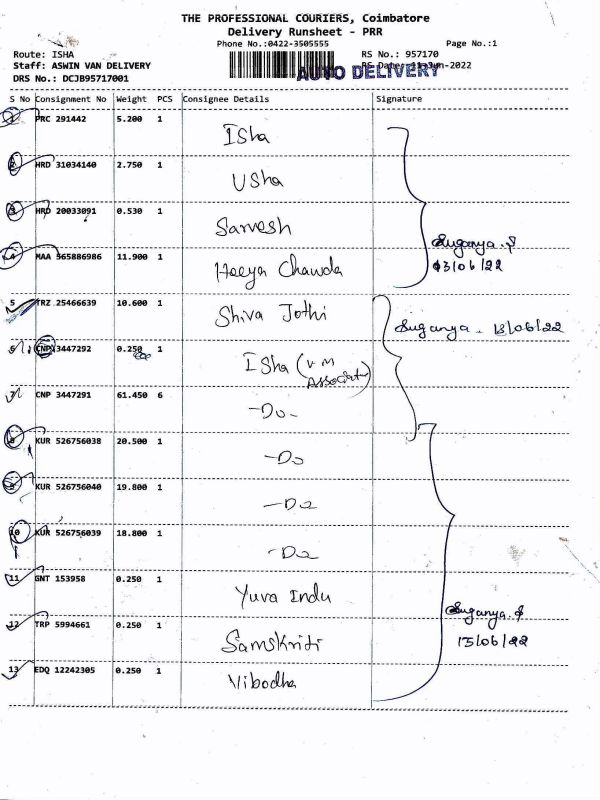 THE PROFESSIONAL COURIERS, Coimbatore
Delivery Runsheet - PRR
Phone No.:0422-3505555 Page No.:1
Route: ISHA RS No.: 957170
Staff: ASWIN VAN DELIVERY AUTO DELIVERY RS Date: 13-Jun-2022
DRS No.: DCJB95717001
S No Consignment No Weight PCS Consignee Details Signature
1 PRC 291442 5.200 1 Isha
2 HRD 31034140 2.750 1 Usha
3 HRD 20033091 0.530 1 Sarvesh
4 MAA 365886986 11.900 1 Heeya Chawda
Suganya. S
13/06/22
5 TRZ 25466639 10.600 1 Shiva Jothi
Suganya. 13/06/22
6 CNP 3447292 0.250 1 Isha (V M
7 CNP 3447291 61.450 6 -Do-
8 KUR 526756038 20.500 1 -Do
9 KUR 526756040 19.800 1 -Do
10 KUR 526756039 18.800 1 -Do
11 GNT 153958 0.250 1 Yuva Indu
Suganya. S
13/06/22
12 TRP 5994661 0.250 1 Samskriti
13 EDQ 12242305 0.250 1 Vibodha